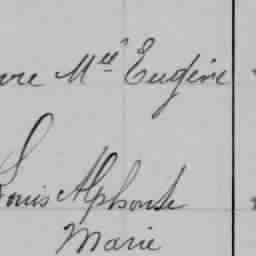 Mce Eugène
Louis Alphonse
Marie